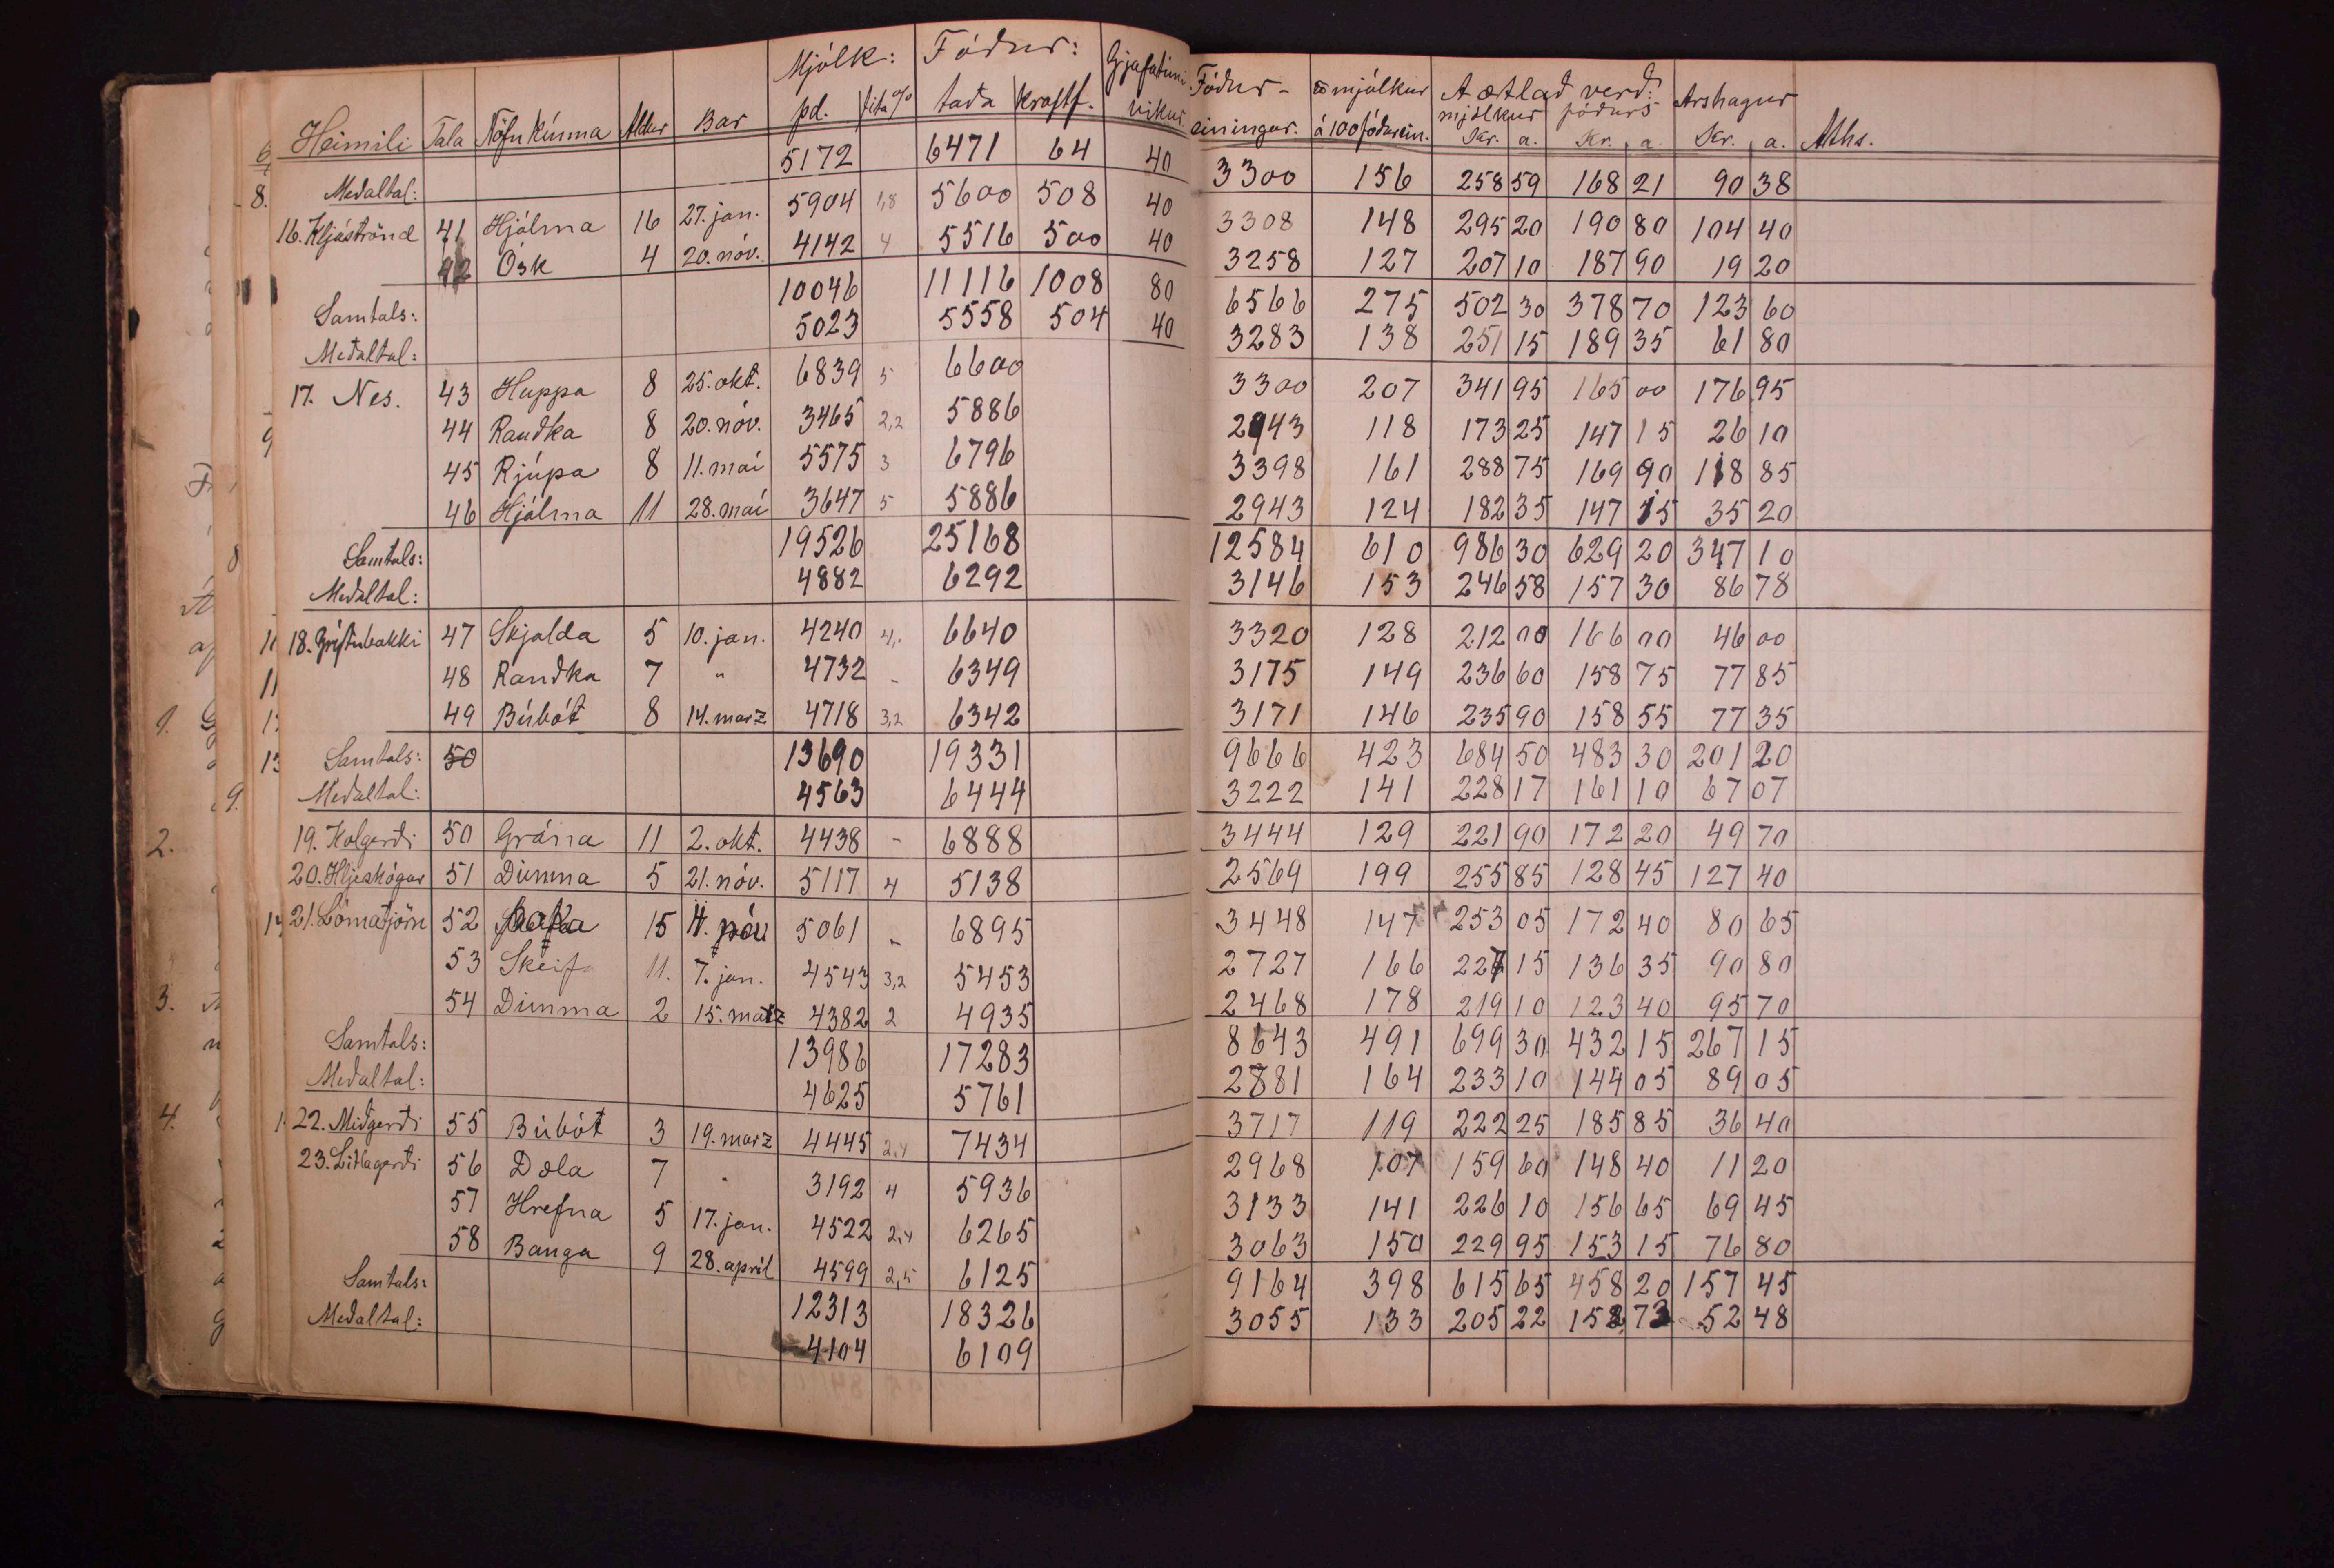 Mjólk: Fóður: Gjafatím. Fóður- ℔ mjólkur Aætlað verð: Arshagur
Heimili Tala Nöfn kúnna Aldur Bar pd. fita % taða kraftf. vikur. einingar. á 100 fóðurein. mjólkur fóðurs
Kr. a. Kr. a. Kr. a. Aths.
Meðaltal: 5172 6471 64 40 3300 156 258 59 168 21 90 38
16. Kljáströnd 41 Hjálma 16 27. jan. 5904 1,8 5600 508 40 3308 148 295 20 190 80 104 40
42 Ósk 4 20. nóv. 4142 4 5516 500 40 3258 127 207 10 187 90 19 20
Samtals: 10046 11116 1008 80 6566 275 502 30 378 70 123 60
Meðaltal: 5023 5558 504 40 3283 138 251 15 189 35 61 80
17. Nes. 43 Huppa 8 25. okt. 6839 5 6600 3300 207 341 95 165 00 176 95
44 Rauðka 8 20. nóv. 3465 2,2 5886 2943 118 173 25 147 15 26 10
45 Rjúpa 8 11. maí 5575 3 6796 3398 161 288 75 169 90 118 85
46 Hjálma 11 28. maí 3647 5 5886 2943 124 182 35 147 15 35 20
Samtals: 19526 25168 12584 610 986 30 629 20 347 10
Meðaltal: 4882 6292 3146 153 246 58 157 30 86 78
18. Grýtubakki 47 Skjalda 5 10. jan. 4240 4, 6640 3320 128 212 00 166 00 46 00
48 Rauðka 7 " 4732 - 6349 3175 149 236 60 158 75 77 85
49 Búbót 8 14. marz 4718 3,2 6342 3171 146 235 90 158 55 77 35
Samtals: 50 13690 19331 9666 423 684 50 483 30 201 20
Meðaltal: 4563 6444 3222 141 228 17 161 10 67 07
19. Kolgerði 50 Grána 11 2. okt. 4438 - 6888 3444 129 221 90 172 20 49 70
20. Hljeskógar 51 Dimma 5 21. nóv. 5117 4 5138 2569 199 255 85 128 45 127 40
21. Lómatjörn 52 15 4. nóv 5061 - 6895 3448 147 253 05 172 40 80 65
53 Skeif 11. 7. jan. 4543 3,2 5453 2727 166 227 15 136 35 90 80
54 Dimma 2 15. marz 4382 2 4935 2468 178 219 10 123 40 95 70
Samtals: 13986 17283 8643 491 699 30 432 15 267 15
Meðaltal: 4625 5761 2881 164 233 10 144 05 89 05
22. Miðgerði 55 Búbót 3 19. marz 4445 2,4 7434 3717 119 222 25 185 85 36 40
23. Litlagerði 56 Dola 7 " 3192 4 5936 2968 107 159 60 148 40 11 20
57 Hrefna 5 17. jan. 4522 2,4 6265 3133 141 226 10 156 65 69 45
58 Banga 9 28. april 4599 2,5 6125 3063 150 229 95 153 15 76 80
Samtals: 12313 18326 9164 398 615 65 458 20 157 45
Meðaltal: 4104 6109 3055 133 205 22 152 73 52 48